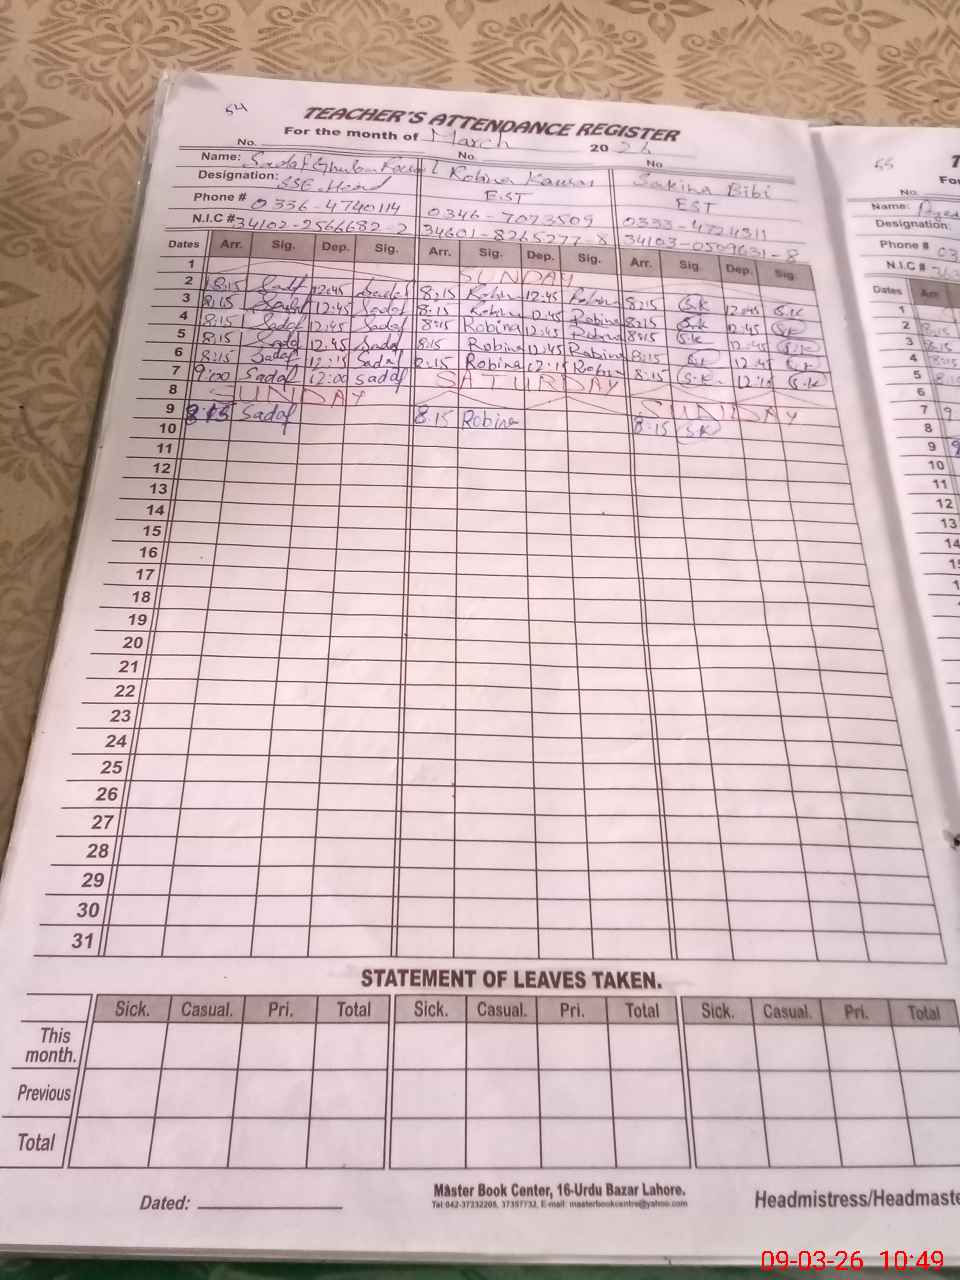 54
TEACHER'S ATTENDANCE REGISTER
For the month of March 2026
No. No. No
Name: Sadaf Ghulam Rasul Robina Kausar Sakina Bibi
Designation: SSE Head EST EST
Phone # 0336-4740114 0346-7073509 0333-4724311
N.I.C # 34102-2566682-2 34601-8265277-8 34103-0509631-8
Dates Arr. Sig. Dep. Sig. Arr. Sig. Dep. Sig. Arr. Sig. Dep. Sig.
1 SUNDAY
2 8:15 Sadaf 12:45 Sadaf 8:15 Robina 12:45 Robina 8:15 S.K 12:45 S.K
3 8:15 Sadaf 12:45 Sadaf 8:15 Robina 12:45 Robina 8:15 S.K 12:45 S.K
4 8:15 Sadaf 12:45 Sadaf 8:15 Robina 12:45 Robina 8:15 S.K 12:45 S.K
5 8:15 Sadaf 12:45 Sadaf 8:15 Robina 12:45 Robina 8:15 S.K 12:45 S.K
6 8:15 Sadaf 12:15 Sadaf 8:15 Robina 12:15 Robina 8:15 S.K 12:15 S.K
7 9:00 Sadaf 12:00 Sadaf SATURDAY
8 SUNDAY SUNDAY
9 8:15 Sadaf 8:15 Robina 8:15 SK
10
11
12
13
14
15
16
17
18
19
20
21
22
23
24
25
26
27
28
29
30
31
STATEMENT OF LEAVES TAKEN.
Sick. Casual. Pri. Total Sick. Casual. Pri. Total Sick. Casual. Pri. Total
This month.
Previous
Total
Dated:
Master Book Center, 16-Urdu Bazar Lahore.
Tel:042-37232205, 37357732, E-mail: masterbookcentre@yahoo.com
Headmistress/Headmaste
55
No.
Name:
Designation:
Phone #
N.I.C #
Dates Arr.
1
2 8:15
3 8:15
4 8:15
5
6
7 9
8
9
10
11
12
13
14
09-03-26 10:49